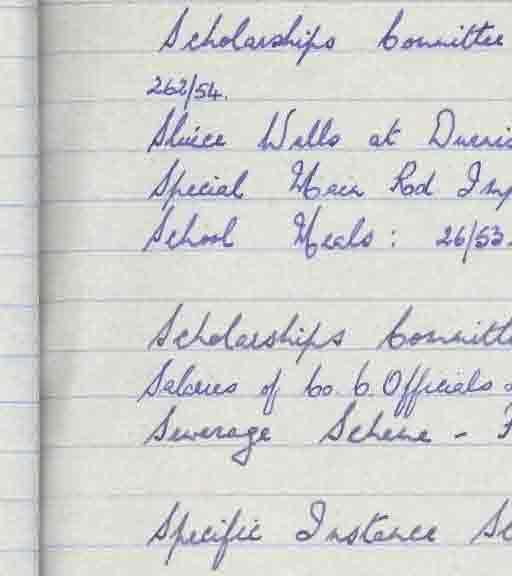 Scholarships Committee
262/54.
Sluice Walls at
Special Main Rd Imp
School Meals: 26/53
Scholarships Committe
Salaries of Co. C. Officials
Sewerage Scheme -
Specific Instance